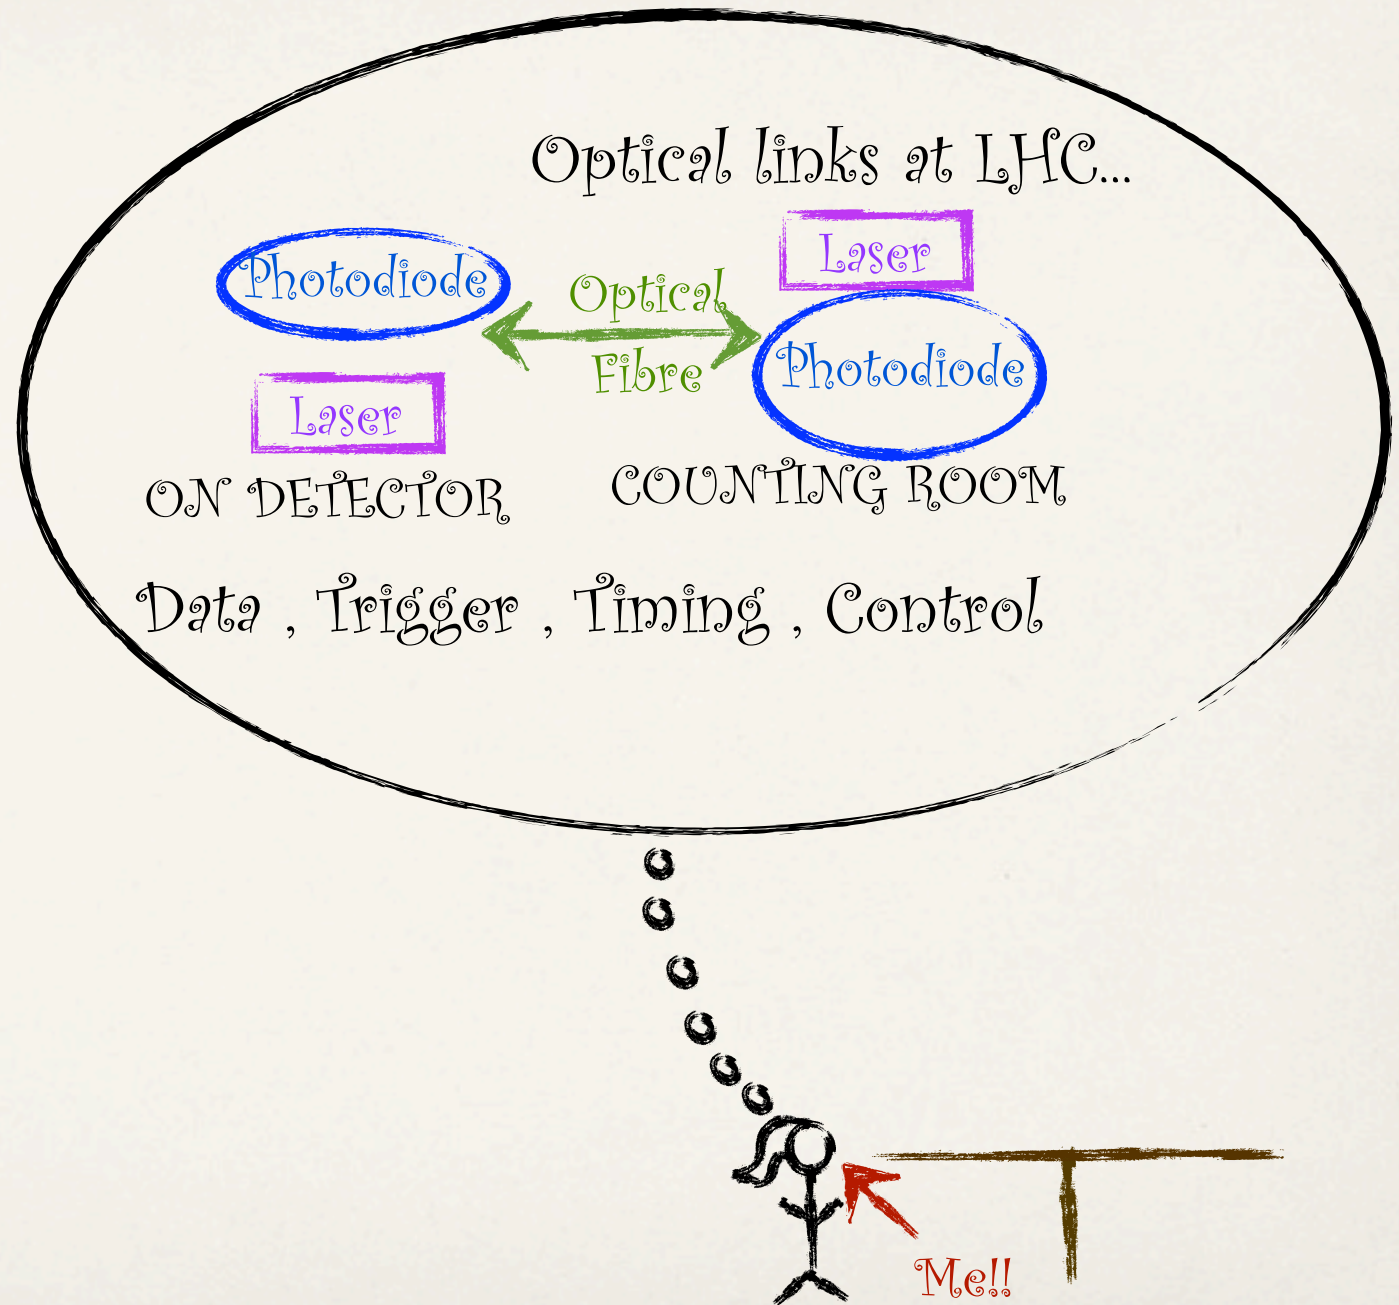 Optical links at LHC...
Laser
Photodiode
Optical
Fibre
Photodiode
Laser
ON DETECTOR
COUNTING ROOM
Data , Trigger , Timing , Control
Me!!